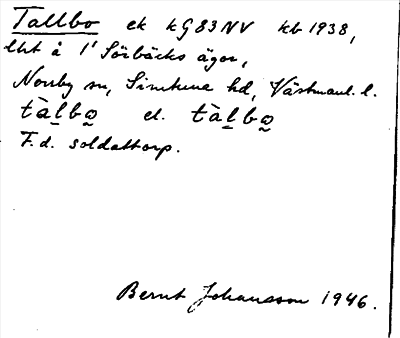 Tallbo ek kG83NV kb 1938,
lht å 1' Sörbäcks ägor,
Norrby sn, Simtuna hd, Västmanl. l.
tàlbo̰ el. tàlbo̰
F.d. soldattorp.
Bernt Johansson 1946.